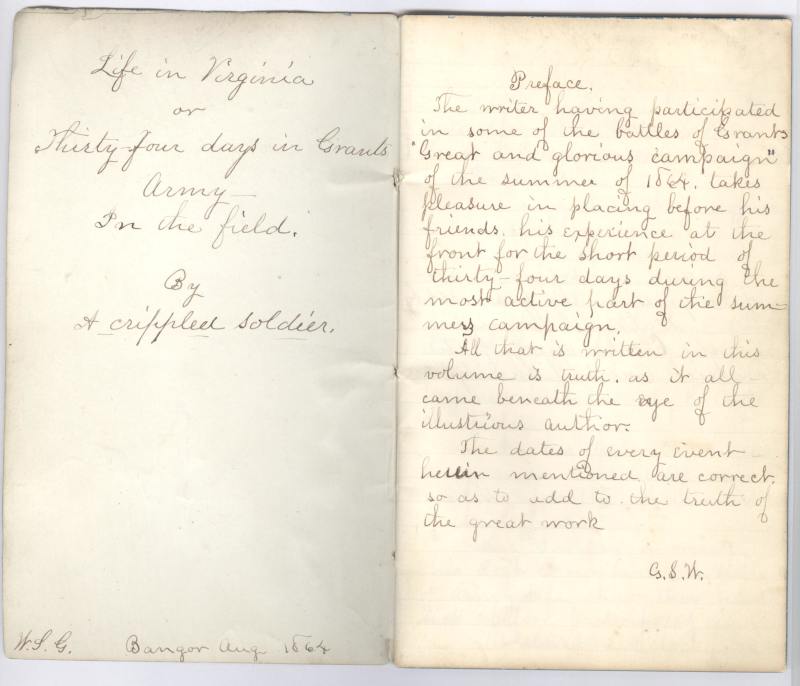 Life in Virginia
or
Thirty-four days in Grants
Army—
In the field.
By
A crippled soldier.
W.S.G. Bangor Aug 1864
Preface.
The writer having participated
in some of the battles of Grants
"Great and glorious campaign"
of the summer of 1864. takes
pleasure in placing before his
friends, his experience at the
front for the short period of
thirty-four days during the
most active part of the sum-
mers campaign.
All that is written in this
volume is truth. as it all
came beneath the eye of the
illustrious author.
The dates of every event
herein mentioned are correct.
so as to add to the truth of
the great work
G.S.W.